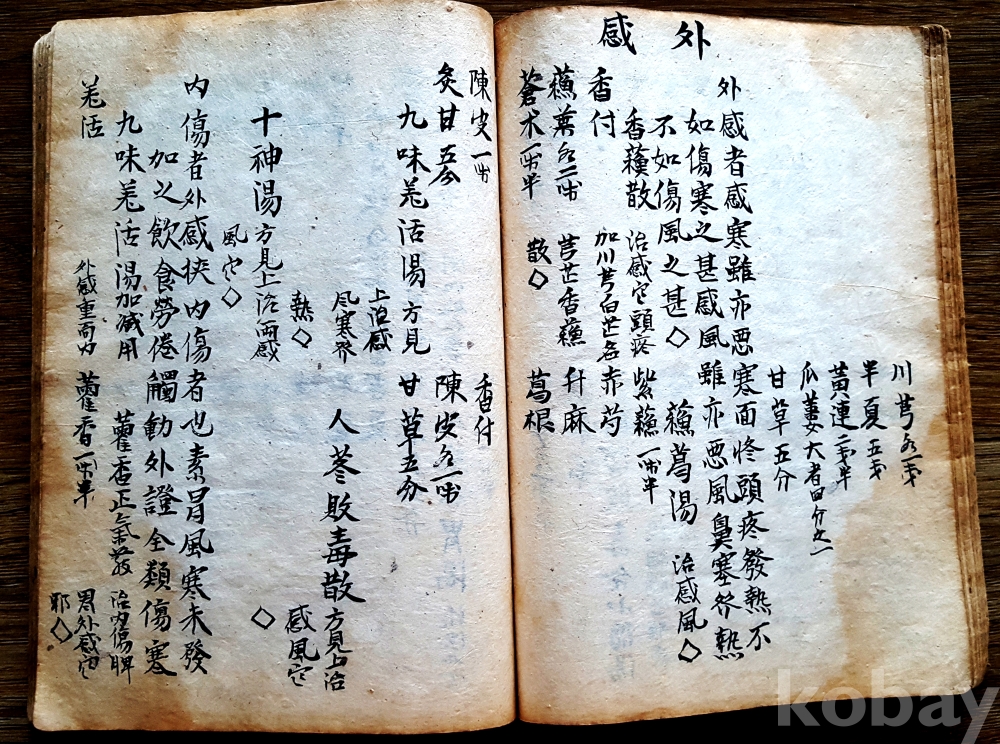 外感
川芎各一戔
半夏五戔
黃連二戔半
瓜蔞大者四分之一
甘草五分
外感者感寒雖亦惡寒面疼頭疼發熱不
如傷寒之甚感風雖亦惡風鼻塞發熱
不如傷風之甚◇
香蘓散 治感寒頭疼
加川芎白芷名
芎芷香蘓
散◇
香付
蘓葉各二兩
蒼朮一兩半
陳皮一兩
炙甘五分
蘓葛湯 治感風◇
紫蘓一兩半
赤芍
升麻
葛根
香付
陳皮各一兩
甘草五分
九味羌活湯 方見
上治感
風寒發
熱◇
人參敗毒散 方見上治
感風寒◇
十神湯 方見上治兩感
風寒◇
內傷者外感挾內傷者也素冒風寒未發
加之飲食勞倦觸動外證全類傷寒
九味羌活湯加減用
外感重而
羌活
藿香正氣散 治內傷脾
胃外感寒
邪◇
藿香一兩半
kobay